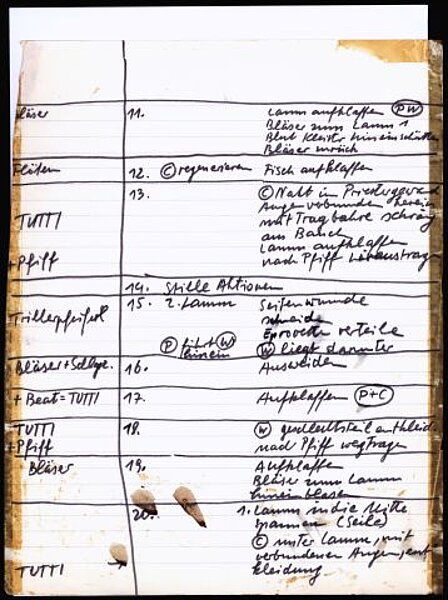 Bläser 11. Lamm aufklaffen (PW)
Bläser zum Lamm 1
Blut Kleister hineinschütten
Bläser zurück
Flöten 12. (C) regenerieren Fisch aufklaffen
13. (C) Nackt in Priestergewand
Augen verbunden herein
TUTTI mit Tragbahre schräg
am Bauch
Lamm aufklaffen
+ Pfiff nach Pfiff hinaustragen
14. Stille Aktionen
15. 2. Lamm Seitenwunde
Trillerpfeiferl schneiden
Eprovette
(P) führt (W) hinein (W) liegt darunter
Bläser + 16. Ausweiden
+ Beat = TUTTI 17. Aufklaffen (P+C)
TUTTI 18. (W)
+ Pfiff nach Pfiff wegtragen
Bläser 19. Aufklaffen
Bläser zum Lamm
hinein blasen
20. 1. Lamm in die Mitte
spannen (Seile)
(C) unter Lamm, mit
verbundenen Augen, ent
TUTTI kleidung